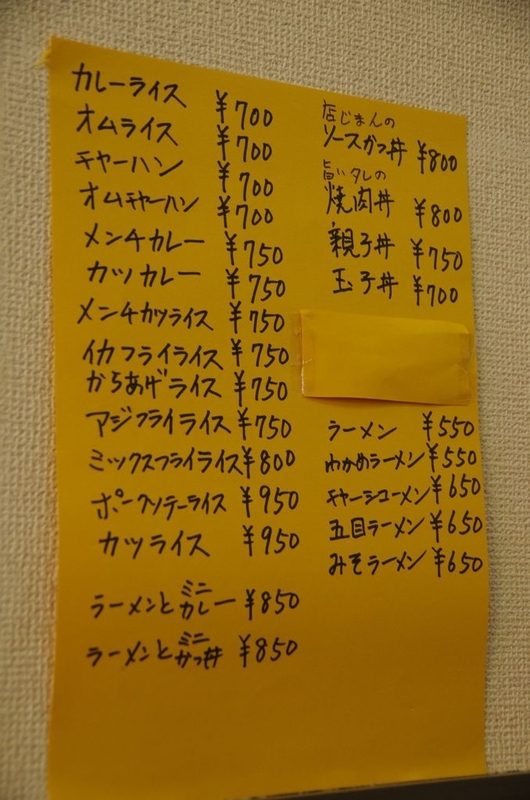 カレーライス ¥700
オムライス ¥700
チャーハン ¥700
オムチャーハン ¥700
メンチカレー ¥750
カツカレー ¥750
メンチカツライス ¥750
イカフライライス ¥750
からあげライス ¥750
アジフライライス ¥750
ミックスフライライス ¥800
ポークソテーライス ¥950
カツライス ¥950
ラーメンとミニカレー ¥850
ラーメンとミニかつ丼 ¥850
店じまんの
ソースかつ丼 ¥800
旨いタレの
焼肉丼 ¥800
親子丼 ¥750
玉子丼 ¥700
ラーメン ¥550
わかめラーメン ¥550
チャーシューメン ¥650
五目ラーメン ¥650
みそラーメン ¥650